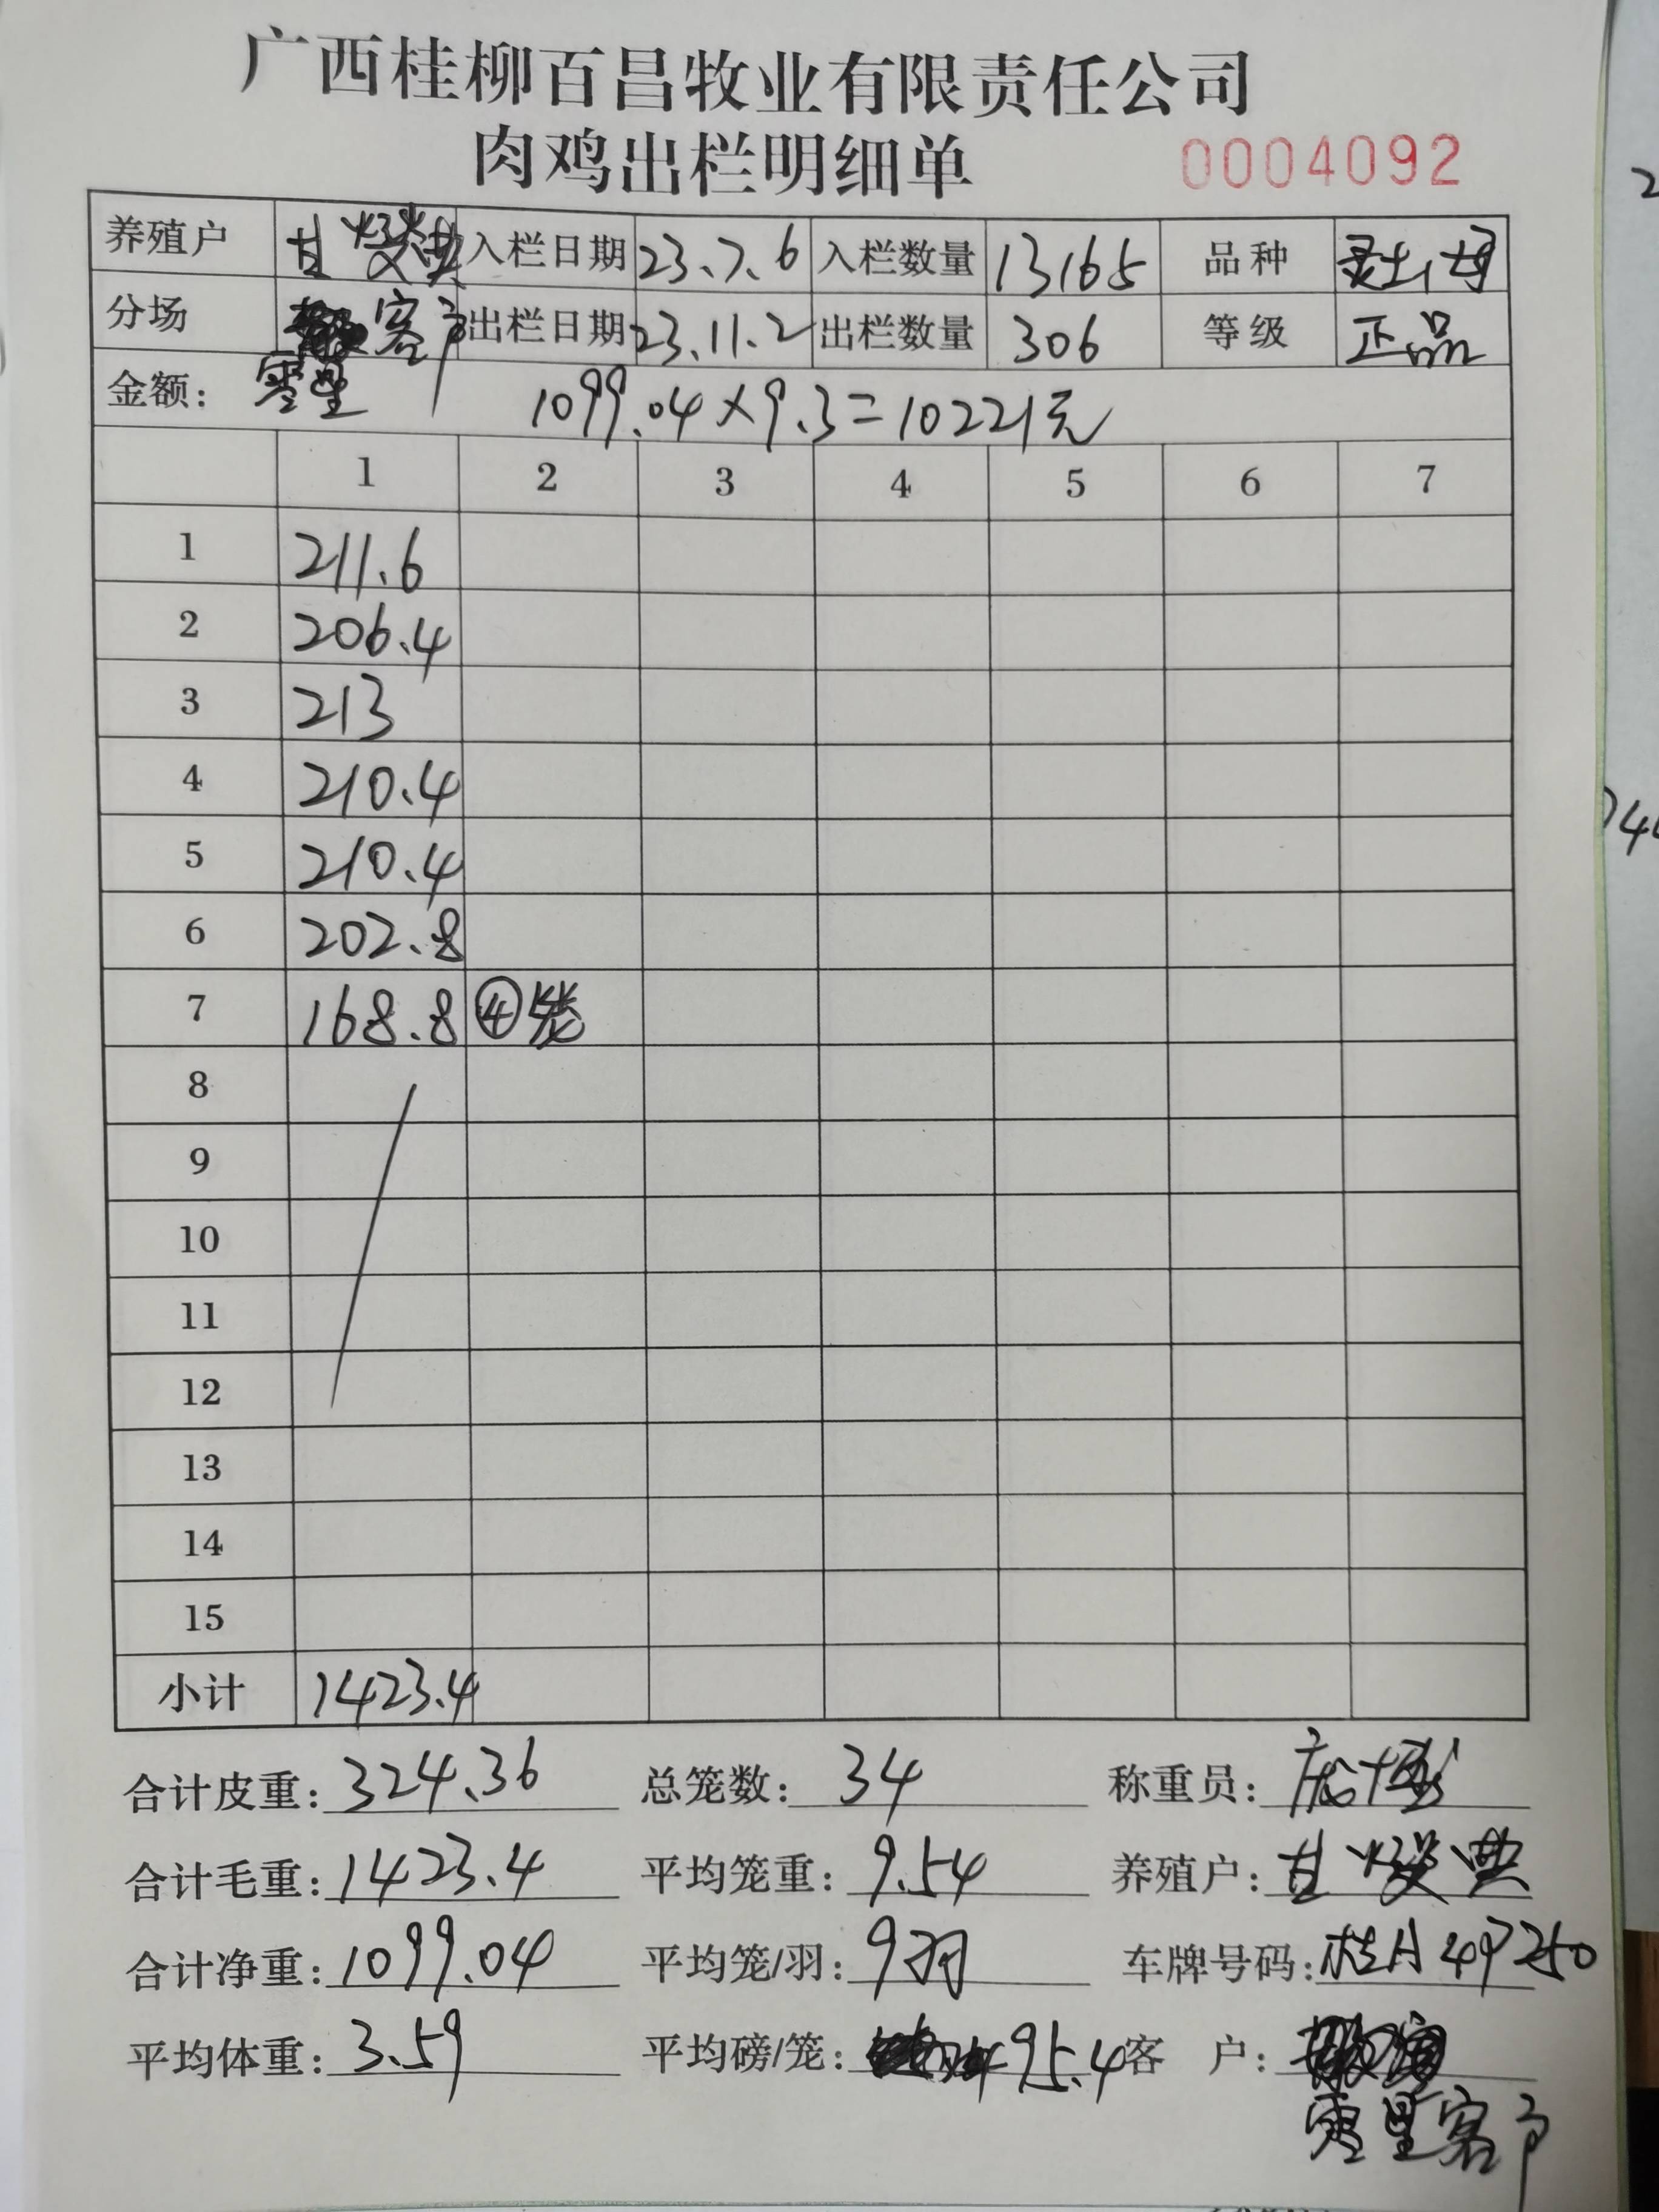 广西桂柳百昌牧业有限责任公司
肉鸡出栏明细单 0004092
养殖户 甘 典 入栏日期 23.7.6 入栏数量 13165 品种 土
分场 客户 出栏日期 23.11.2 出栏数量 306 等级 正品
零星
金额: 1099.04×9.3=10221元
1 2 3 4 5 6 7
1 211.6
2 206.4
3 213
4 210.4
5 210.4
6 202.8
7 168.8 ④笼
8
9
10
11
12
13
14
15
小计 1423.4
合计皮重: 324.36 总笼数: 34 称重员:
合计毛重: 1423.4 平均笼重: 9.54 养殖户: 甘 典
合计净重: 1099.04 平均笼/羽: 9羽 车牌号码: 桂A
平均体重: 3.59 平均磅/笼: 95.4 客 户:
零星客户